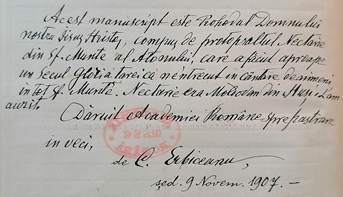 Acest manuscript este Prohodul Domnului
nostru Iisus Hristos, compus de protopsaltul Nectarie
din Sf. Munte al Atonului, care a făcut aproape
un secul gloria lui ce neîntrecut în cântare de nimeni
în tot Sf. Munte. Nectarie era Moldovan din Huși. L'am
auzit.
Dăruit Academiei Române spre păstrare
în veci,
de C. Erbiceanu,
șed. 9 Novem. 1907. —